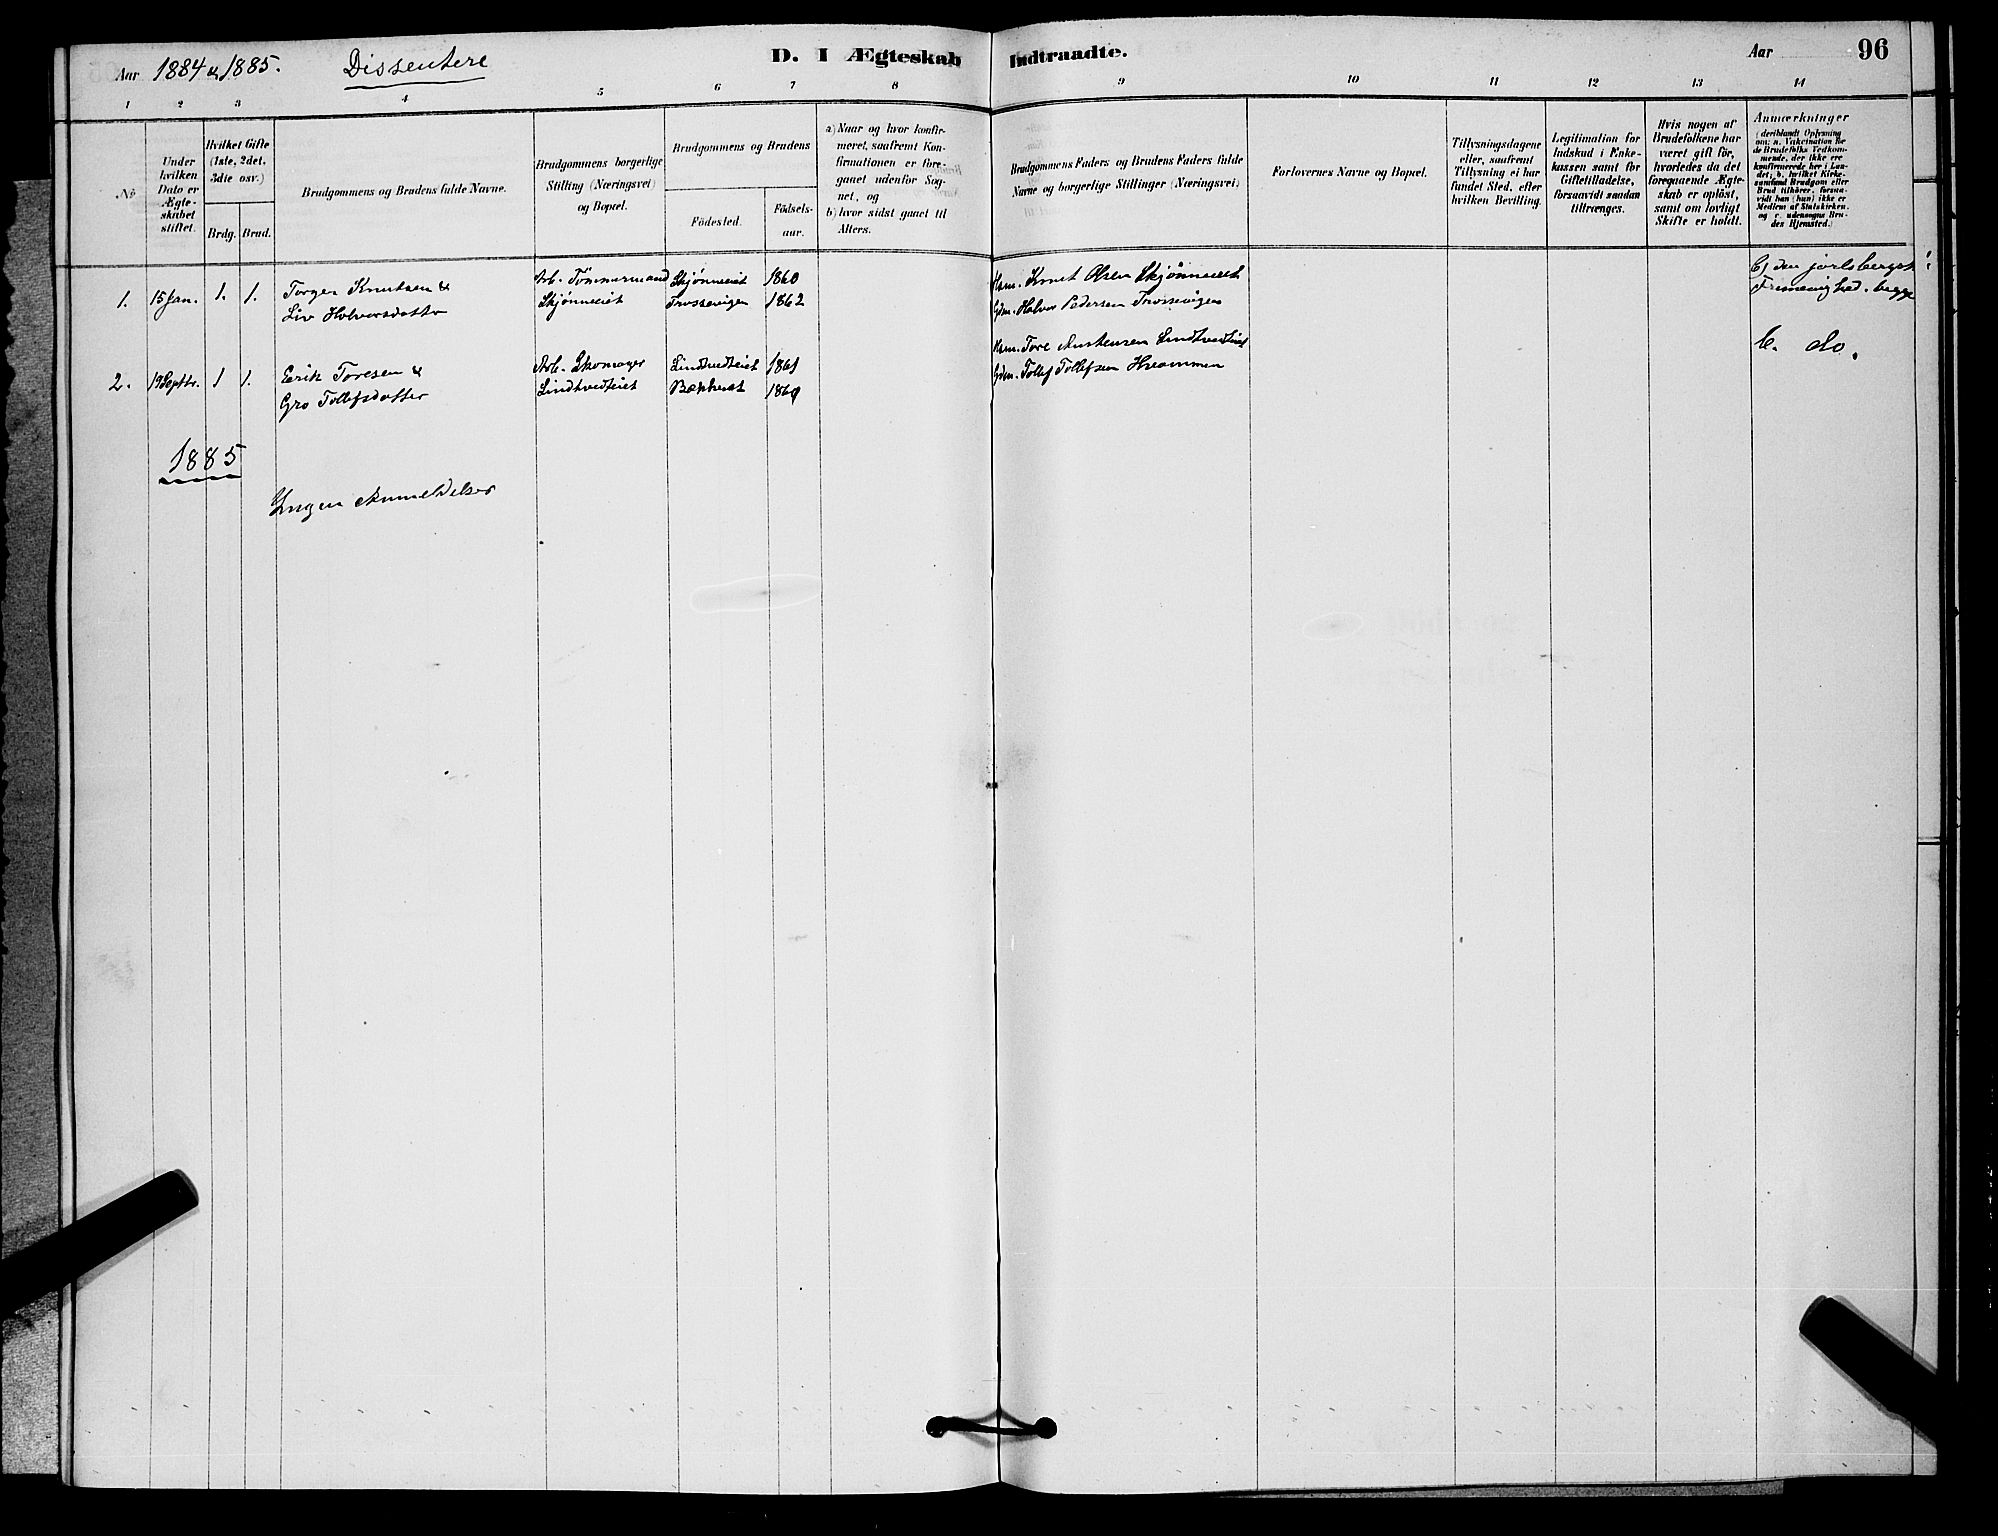 Aar 1884 & 1885. Dissentere
D. I Ægteskab Indtraadte.
Aar 96
1 2 3 4 5 6 7 8 9 10 11 12 13 14
No
Under
hvilken
Dato er
Ægte-
skabet
stiftet.
Hvilket Gifte
(1ste, 2det,
3die osv.)
Brdg. Brud.
Brudgommens og Brudens fulde Navne.
Brudgommens borgerlige
Stilling (Næringsvei)
og Bopæl.
Brudgommens og Brudens
Fødested.
Fødsels-
aar.
a) Naar og hvor konfir-
meret, saafremt Kon-
firmationen er fore-
gaaet udenfor Sog-
net, og
b) hvor sidst gaaet til
Alters.
Brudgommens Faders og Brudens Faders fulde
Navne og borgerlige Stillinger (Næringsvei)
Forlovernes Navne og Bopæl.
Tillysningsdagene
eller, saafremt
Tillysning ei har
fundet Sted, efter
hvilken Bevilling.
Legitimation for
Indskud i Enke-
kassen samt for
Giftetilladelse,
forsaavidt saadan
tiltrænges.
Hvis nogen af
Brudefolkene har
været gift før,
hvorledes da det
foregaaende Ægte-
skab er opløst,
samt om lovligt
Skifte er holdt.
Anmærkninger
(deriblandt Oplysning
om: a. Vakcination for
de Brudefolks Vedkom-
mende, der ikke ere
konfirmerede her i Lan-
det, b. hvilket Kirke-
samfund Brudgom eller
Brud tilhører, forsaa-
vidt han (hun) ikke er
Medlem af Statskirken,
og c. udensogns Bru-
des Hjemsted.)
1. 15 Jan. 1. 1. Torger Knutsen &
Liv Halvorsdatter
Arb. Tømmermand
Skjønneeiet
Skjønneeiet 1860
Trossevigen 1862
Hsm. Knut Olsen Skjønneeiet
Gdm. Halvor Pedersen Trossevigen
den jarlsbergst
Frimenighed. begge
2. 19 Septbr. 1 1. Eerik Toresen &
Gro Tollefsdatter
Arb. Skomager
Lindtvedteiet
Lindtvedteiet 1861
1860
Hsm. Tore Lindtvedteiet
Gdm. Tollef Tollefsen
b. do.
1885
Ingen Anmeldelser